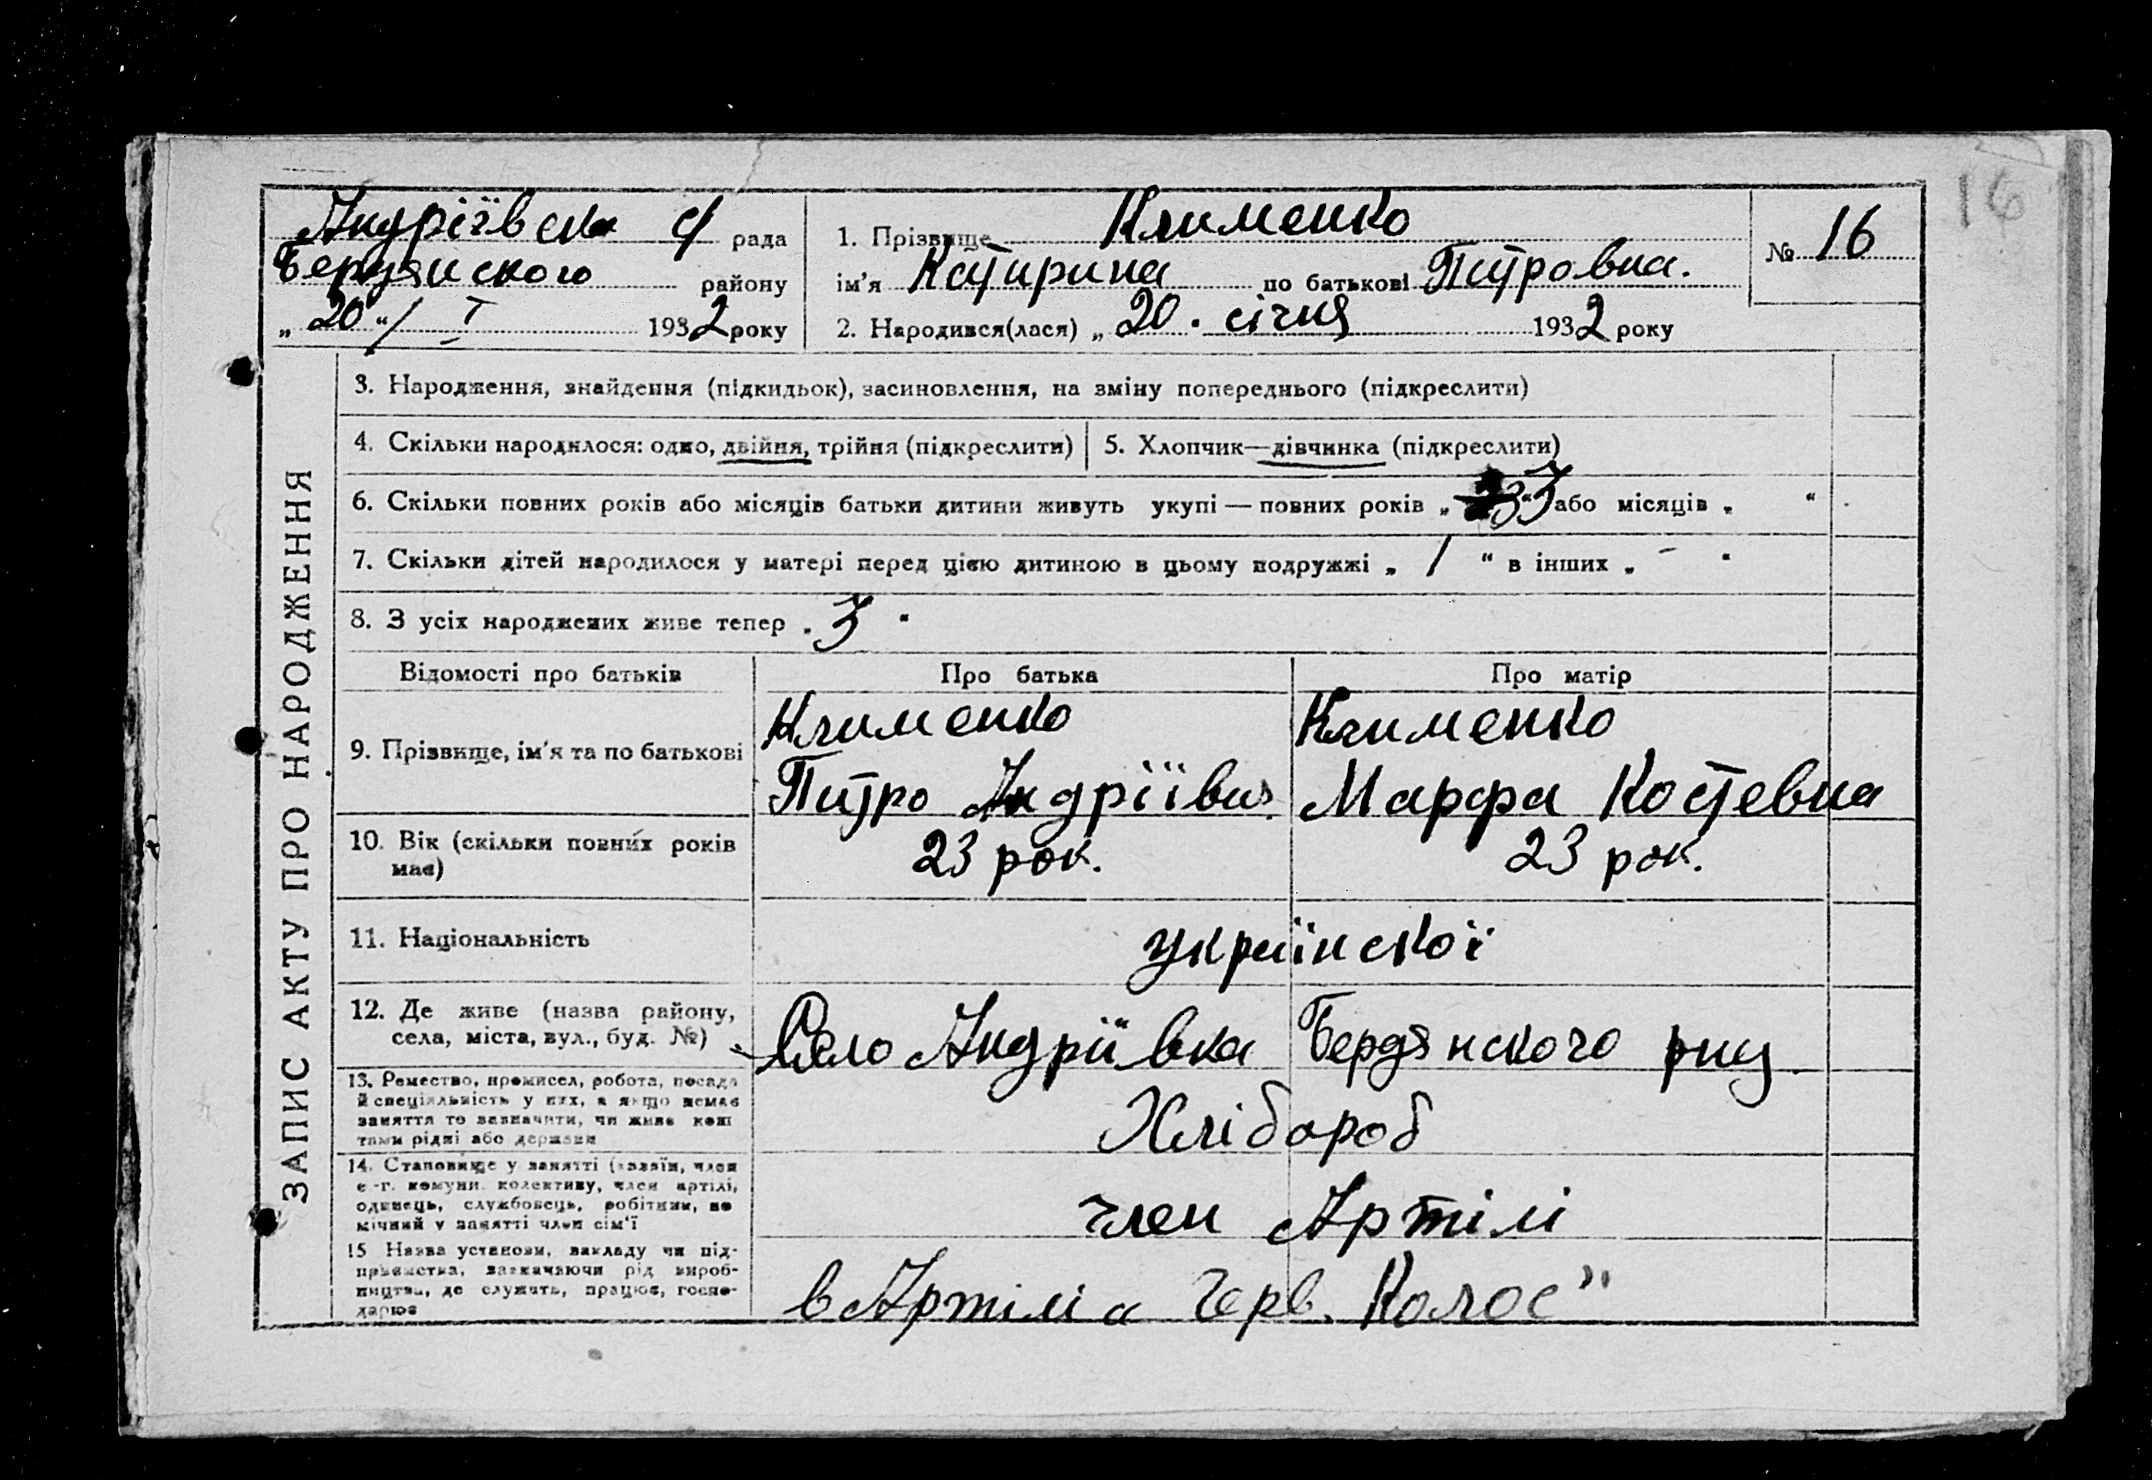 16
Андріївська с/ рада
Бердянского району
„ 20 “ / I 1932 року
1. Прізвище Клименко
ім'я Катирина по батькові Питровна.
2. Народився(лася) „ 20 . січня 1932 року
№ 16
ЗАПИС АКТУ ПРО НАРОДЖЕННЯ
3. Народження, знайдення (підкидьок), засиновлення, на зміну попереднього (підкреслити)
4. Скільки народилося: одно, двійня, трійня (підкреслити)
5. Хлопчик—дівчинка (підкреслити)
6. Скільки повних років або місяців батьки дитини живуть укупі — повних років „ 3 або місяців „ “
7. Скільки дітей народилося у матері перед цією дитиною в цьому подружжі „ 1 “ в інших „ - "
8. З усіх народжених живе тепер „ 3 "
Відомості про батьків
Про батька
Про матір
9. Прізвище, ім'я та по батькові
Клименко
Питро Андріївич
Клименко
Марфа Костевна
10. Вік (скільки повних років
має)
23 рок.
23 рок.
11. Національність
україіської
12. Де живе (назва району,
села, міста, вул., буд. №)
Село Андріївка Бердянского рну
13. Ремество, промисел, робота, посада
й спеціяльність у них, а якщо немає
заняття то зазначити, чи живе кош
тами рідні або держави
Хлібороб
14. Становище у занятті (хазяїн, член
с.-г. комуни, колективу, член артілі,
одинець, службовець, робітник, по
мічний у занятті член сім'ї
член Артілі
15 Назва установи, закладу чи під-
приємства, зазначаючи рід вироб-
ництва, де служить, працює, госпо-
дарює
в Артілі „ Черв. Колос"